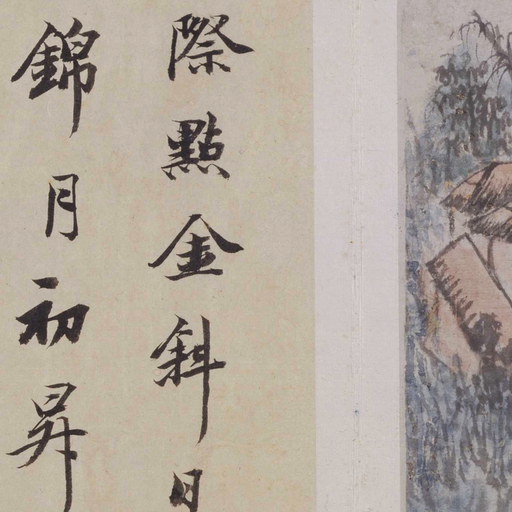 際點金斜日
錦月初昇